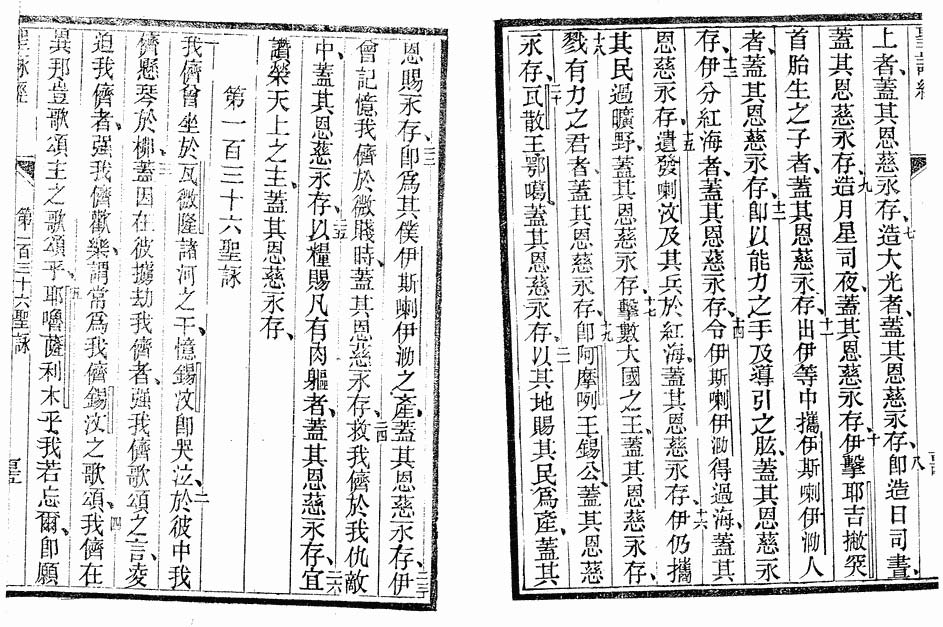 上者、蓋其恩慈永存、七造大光者、蓋其恩慈永存、八即造日司晝、
蓋其恩慈永存、九造月星司夜、蓋其恩慈永存、十伊擊耶吉撇
首胎生之子者、蓋其恩慈永存、十一出伊等中攜伊斯喇伊泐人
者、蓋其恩慈永存、十二即以能力之手及導引之肱、蓋其恩慈永
存、十三伊分紅海者、蓋其恩慈永存、十四令伊斯喇伊泐得過海、蓋其
恩慈永存、十五遺發喇汝及其兵於紅海、蓋其恩慈永存、十六伊仍攜
其民過曠野、蓋其恩慈永存、十七擊數大國之王、蓋其恩慈永存、
十八戮有力之君者、蓋其恩慈永存、十九即阿摩咧王錫公、蓋其恩慈
永存、二十瓦散王鄂噶、蓋其恩慈永存、二一以其地賜其民為產、蓋其
恩賜永存、二二即為其僕伊斯喇伊泐之產、蓋其恩慈永存、二三伊
會記憶我儕於微賤時、蓋其恩慈永存、二四救我儕於我仇敵
中、蓋其恩慈永存、二五以糧賜凡有肉軀者、蓋其恩慈永存、二六宜
讚榮天上之主、蓋其恩慈永存、
第一百三十六聖詠
我儕曾坐於瓦微隆諸河之干、憶錫汶即哭泣、二於彼中我
儕懸琴於柳、三蓋因在彼擄劫我儕者、强我儕歌頌之言、凌
迫我儕者、强我儕歡樂、謂當為我儕錫汶之歌頌、四我儕在
異邦、豈歌頌主之歌頌乎、五耶嚕薩利木乎、我若忘爾、即願
聖詠經
第一百三十六聖詠